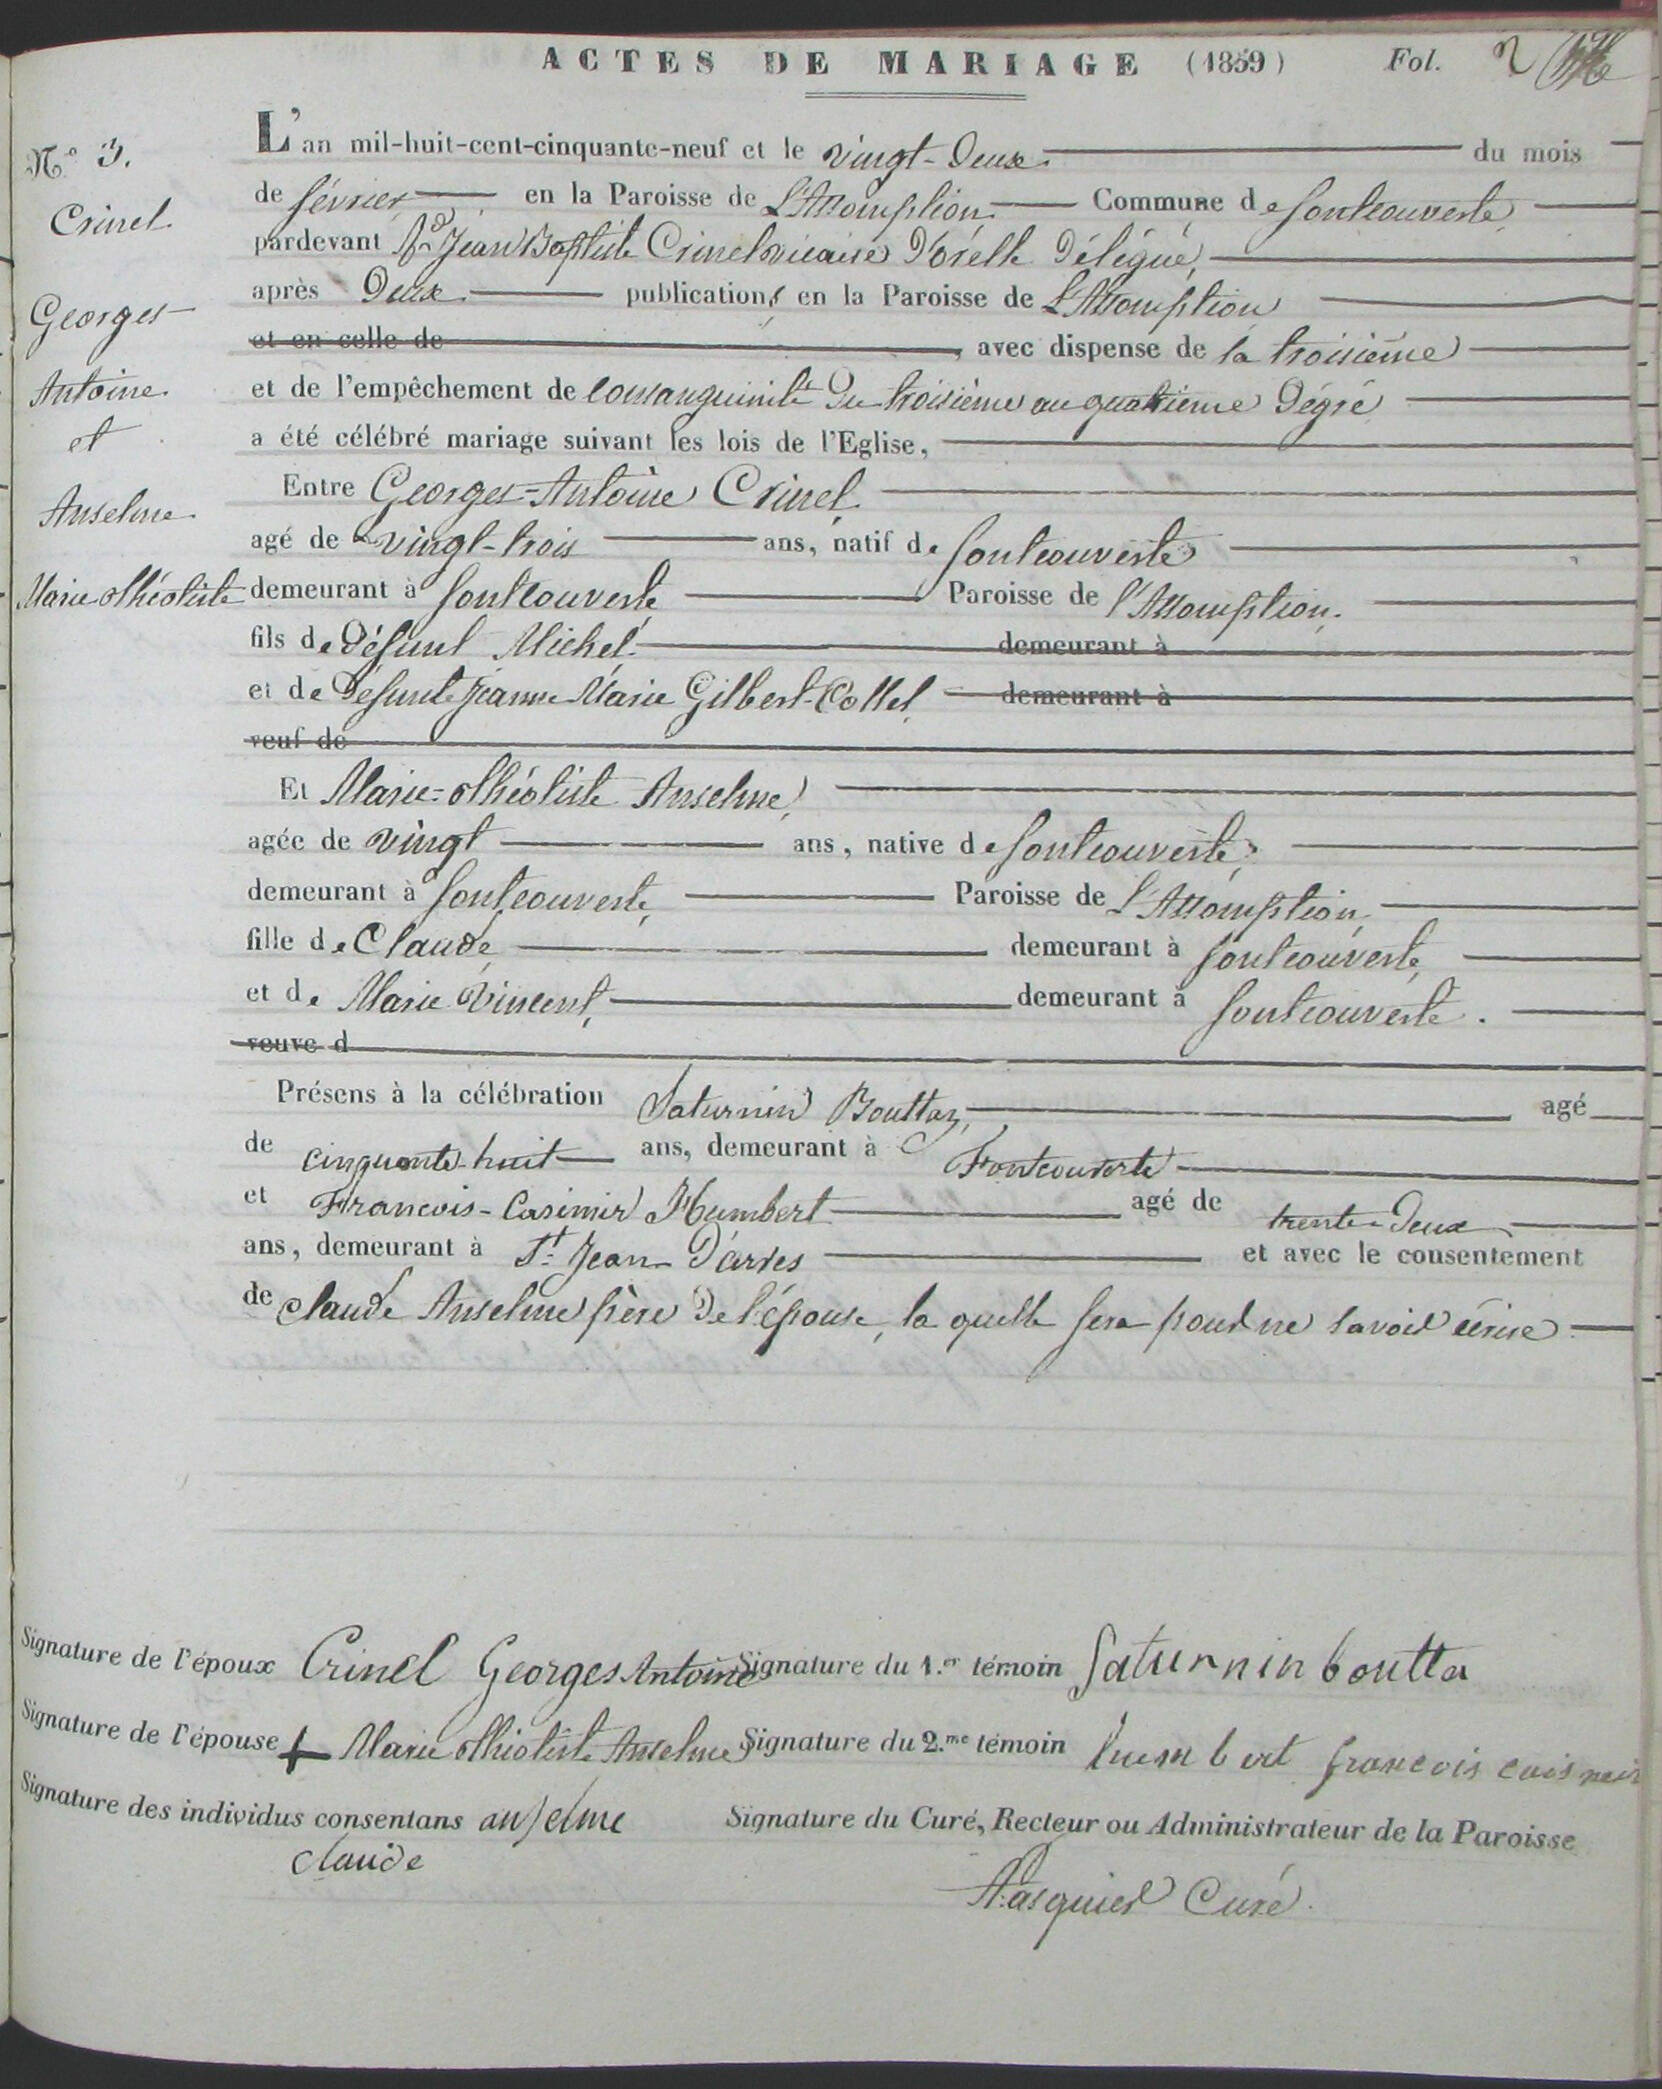 ACTES DE MARIAGE (1859) Fol. 2
N.o 3.
Crinel
Georges
Antoine
et
Anselme
Marie-Théotiste
L'an mil-huit-cent-cinquante-neuf et le vingt-deux du mois
de février en la Paroisse de L'Assomption Commune de fontcouverte
pardevant Rd Jean Baptiste Crinel vicaire d'orelle délégué,
après Deux publications en la Paroisse de L'Assomption
et en celle de , avec dispense de la troisième
et de l'empêchement de consanguinité du troisième au quatrième dégré
a été célébré mariage suivant les lois de l'Eglise,
Entre Georges-Antoine Crinel
agé de vingt-trois ans, natif de fontcouverte
demeurant à fontcouverte, Paroisse de l'Assomption.
fils de défunt Michel demeurant à
et de défunte Jeanne-Marie Gilbert-Collet demeurant à
veuf de
Et Marie-Théotiste Anselme,
agée de vingt ans, native de fontcouverte,
demeurant à fontcouverte, Paroisse de L'Assomption,
fille de Claude demeurant à fontcouverte,
et de Marie Vincent, demeurant à fontcouverte.
veuve d
Présens à la célébration Saturnin Bouttaz, agé
de cinquante-huit ans, demeurant à Fontcouverte
et François-Casimir Humbert agé de trente-deux
ans, demeurant à St Jean d'arves et avec le consentement
de claude Anselme père de l'épouse, la quelle fera pour ne savoir écrire
Signature de l'époux Crinel Georges Antoine Signature du 1.er témoin Saturnin boutta
Signature de l'épouse + Marie Théotiste Anselme Signature du 2.me témoin humbert francois
Signature des individus consentans anselme Signature du Curé, Recteur ou Administrateur de la Paroisse
claude
Pasquier Curé.